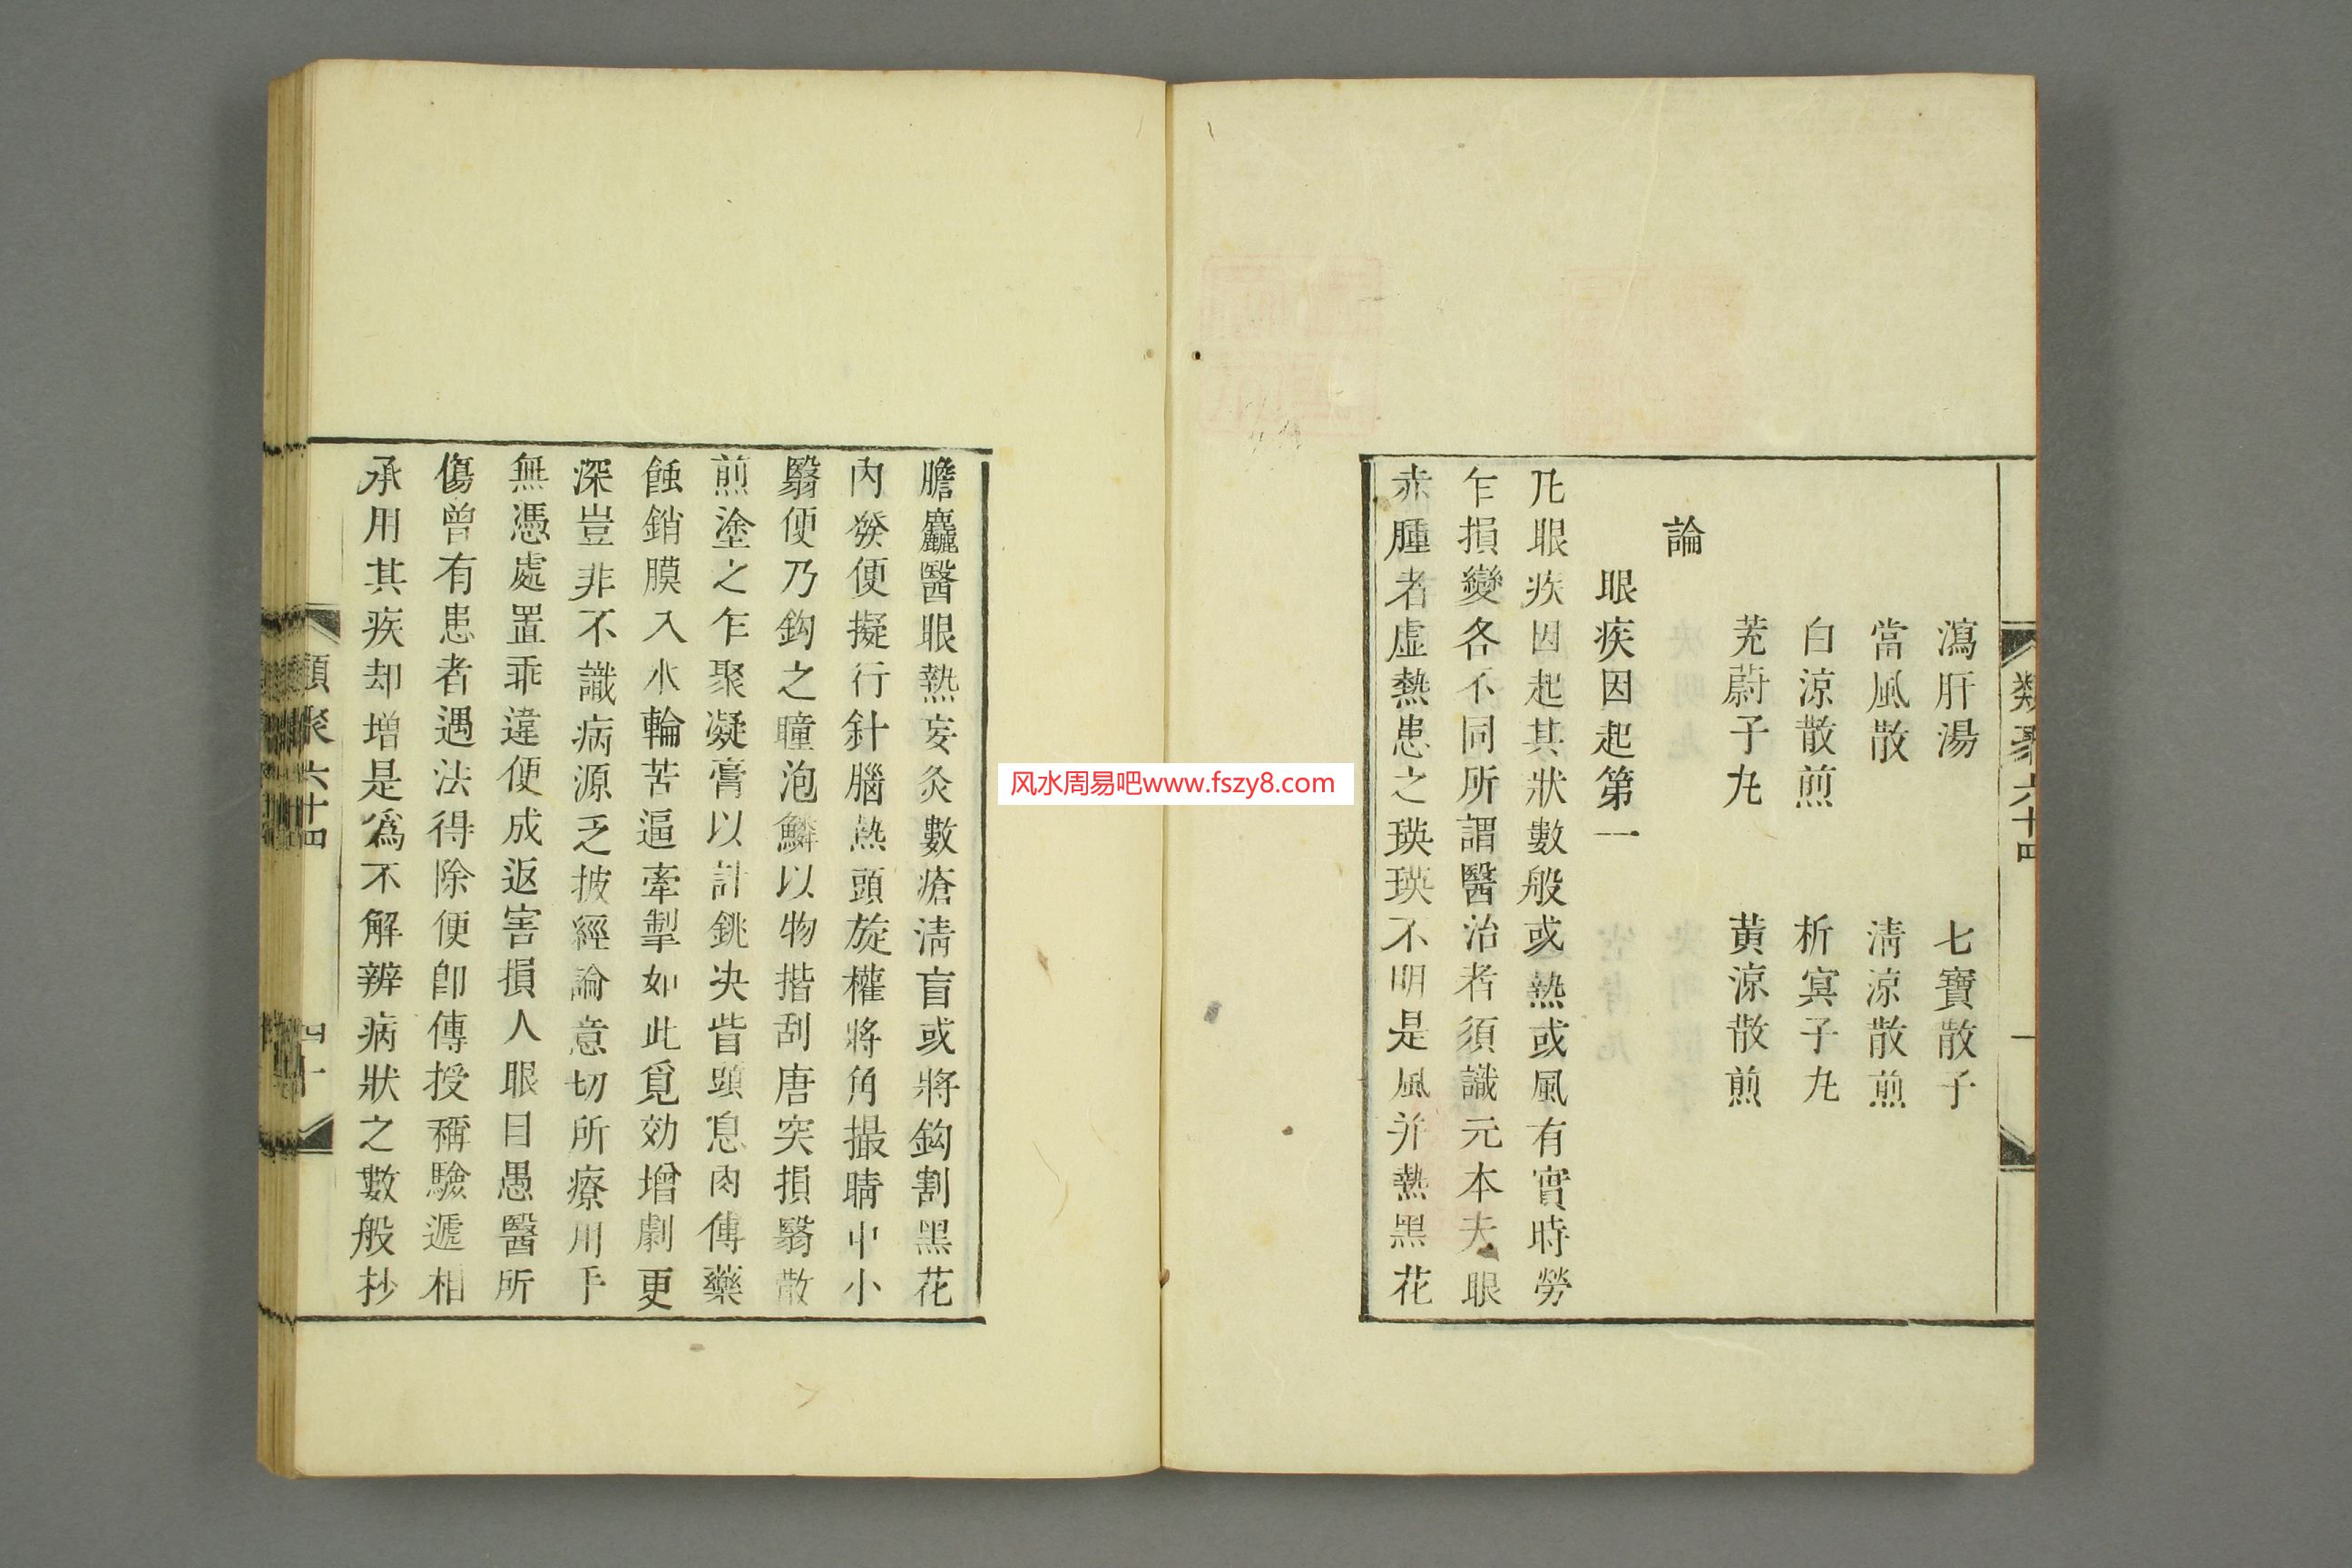 類聚六十四
一
瀉肝湯　七寶散子
當風散　淸涼散煎
白涼散煎　析寘子丸
茺蔚子丸　黄涼散煎
論
眼疾因起第一
凡眼疾因起其狀數般或熱或風有實時勞
乍損變各不同所謂醫治者須識元本夫眼
赤腫者虛熱患之瑛瑛不明是風并熱黑花
膽麤醫眼熱妄灸數瘡淸盲或將鈎割黑花
内發便擬行針腦熱頭旋權將角撮睛中小
翳便乃鈎之瞳泡鱗以物揩刮唐突損翳散
煎塗之乍聚凝膏以計銚决眥頭息肉傅藥
蝕銷膜入水輪苦逼牽掣如此覓効增劇更
深豈非不識病源乏披經論意切所療用手
無憑處置乖違便成返害損人眼目愚醫所
傷曾有患者遇法得除便卽傳授稱驗遞相
承用其疾却增是爲不解辨病狀之數般抄
類聚六十四
四十
风水周易吧www.fszy8.com